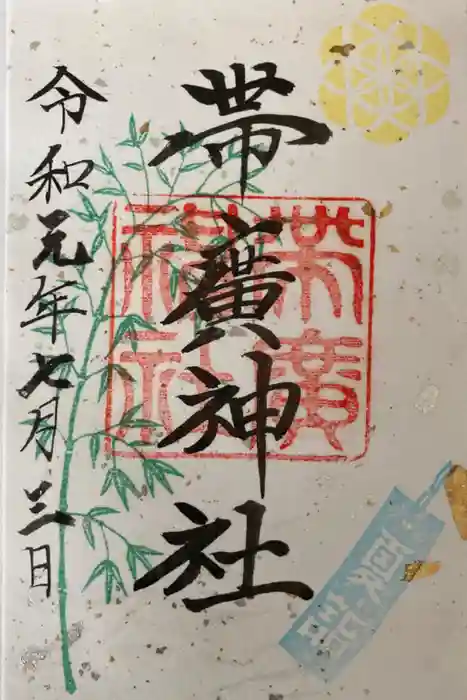 帯廣神社
帯廣
神社
令和元年七月三日